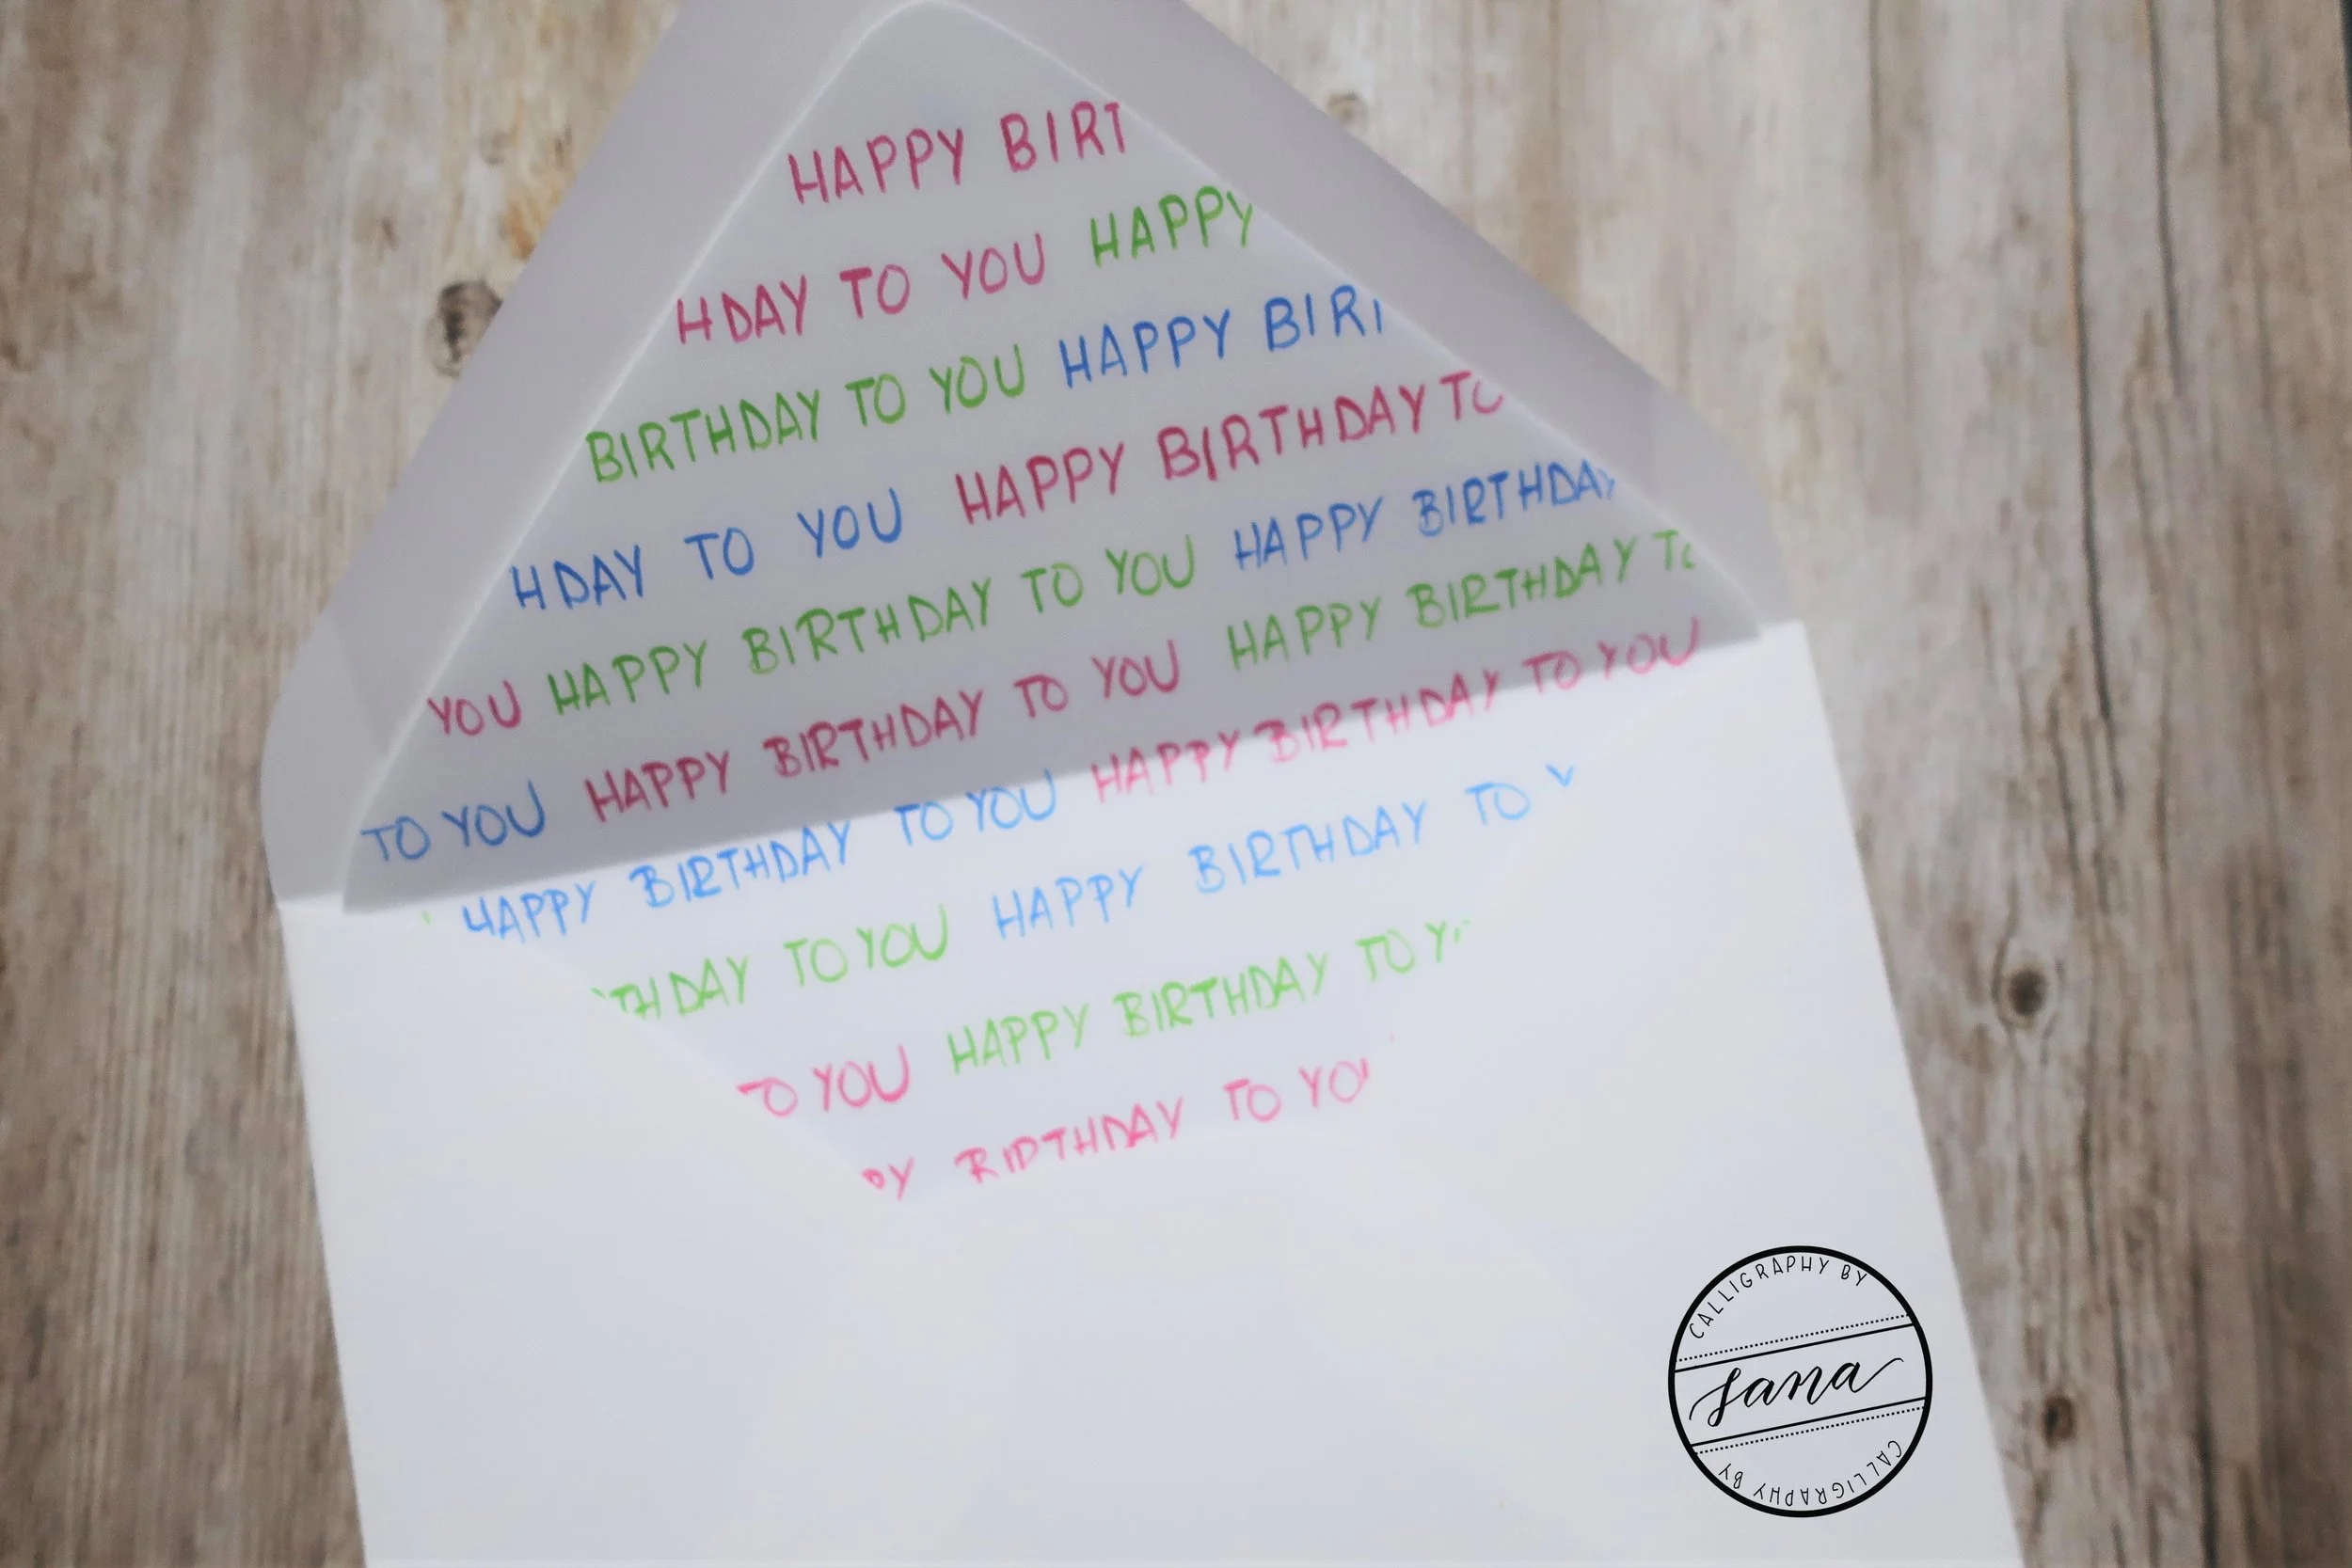 HAPPY BIRT
HDAY TO YOU HAPPY
BIRTHDAY TO YOU HAPPY BIRT
HDAY TO YOU HAPPY BIRTHDAY TO
YOU HAPPY BIRTHDAY TO YOU HAPPY BIRTHDAY
TO YOU HAPPY BIRTHDAY TO YOU HAPPY BIRTHDAY TO
HAPPY BIRTHDAY TO YOU HAPPY BIRTHDAY TO YOU
THDAY TO YOU HAPPY BIRTHDAY TO
TO YOU HAPPY BIRTHDAY TO Y
PY BIRTHDAY TO YO
CALLIGRAPHY BY
sana
CALLIGRAPHY BY